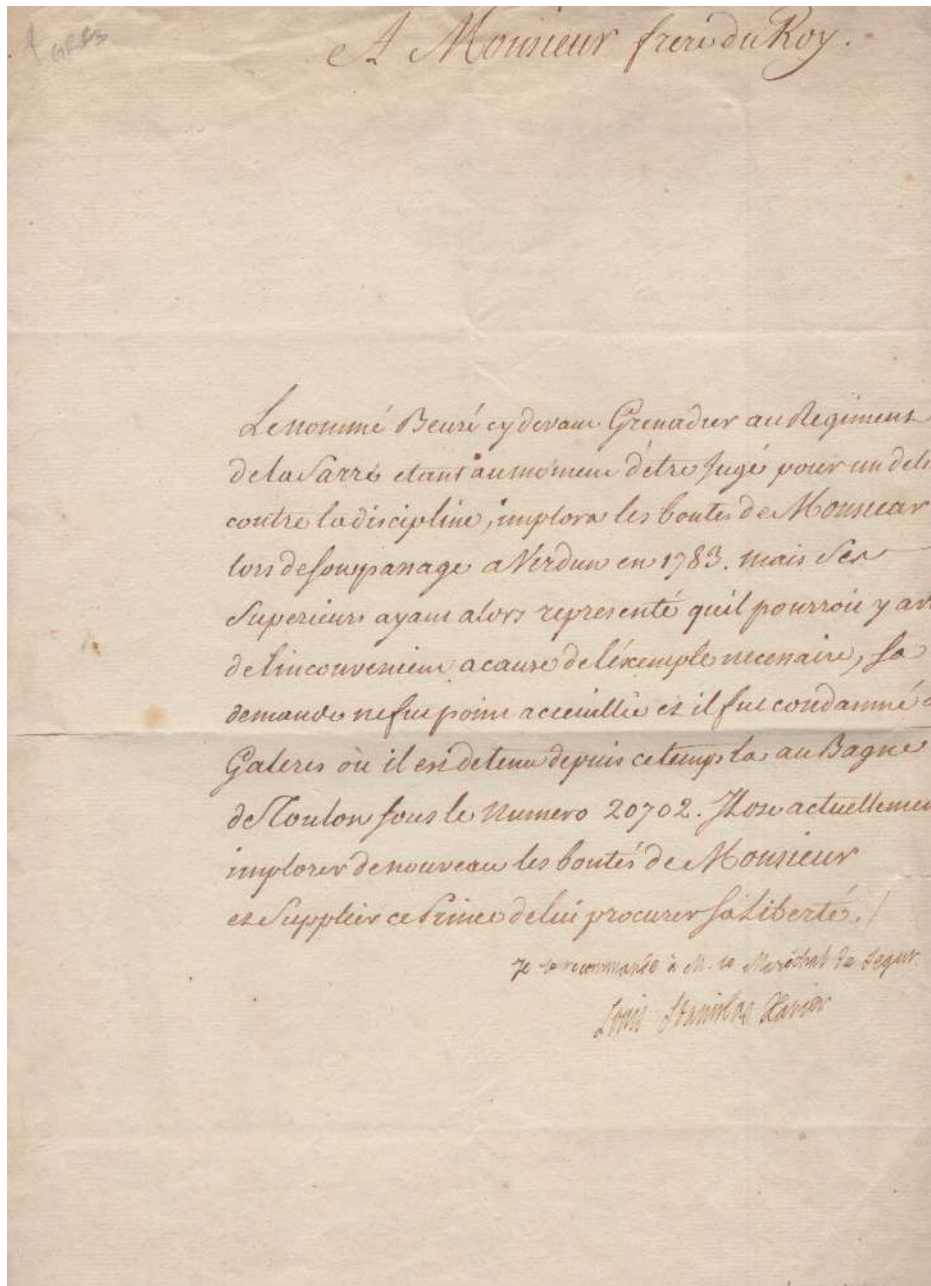 A Monsieur frere du Roy.
Le nommé Beuré cy devant Grenadier au Regiment
de la Sarre etant au moment d'être Jugé pour un deli
contre la discipline, implora les boutés de Monsieur
lors de son passage a Verdun en 1783. mais Ses
Superieurs ayant alors representé quil pourroit y av
de l'inconvenient a cause de l'éxemple necessaire, sa
demande ne fut point accueillie et il fut condamné
Galeres où il est detenu depuis ce temps la au Bagne
de Toulon sous le Numero 20702. Il ose actuellemen
implorer de nouveau les bontés de Monsieur
et Supplier ce Prince de lui procurer sa Liberté. /
Je le recommande à M. le Maréchal de Segur.
Louis Stanislas Xavier